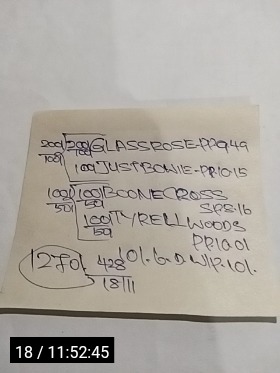 200 200 GLASSROSE-PP949
100 100
100 JUSTBOWIE-PR1015
100 100 BOONECROSS
50 50 SPS:16
100 TYRELLWOODS
50 PP1001
1270/.
428
18111
18 / 11:52:45